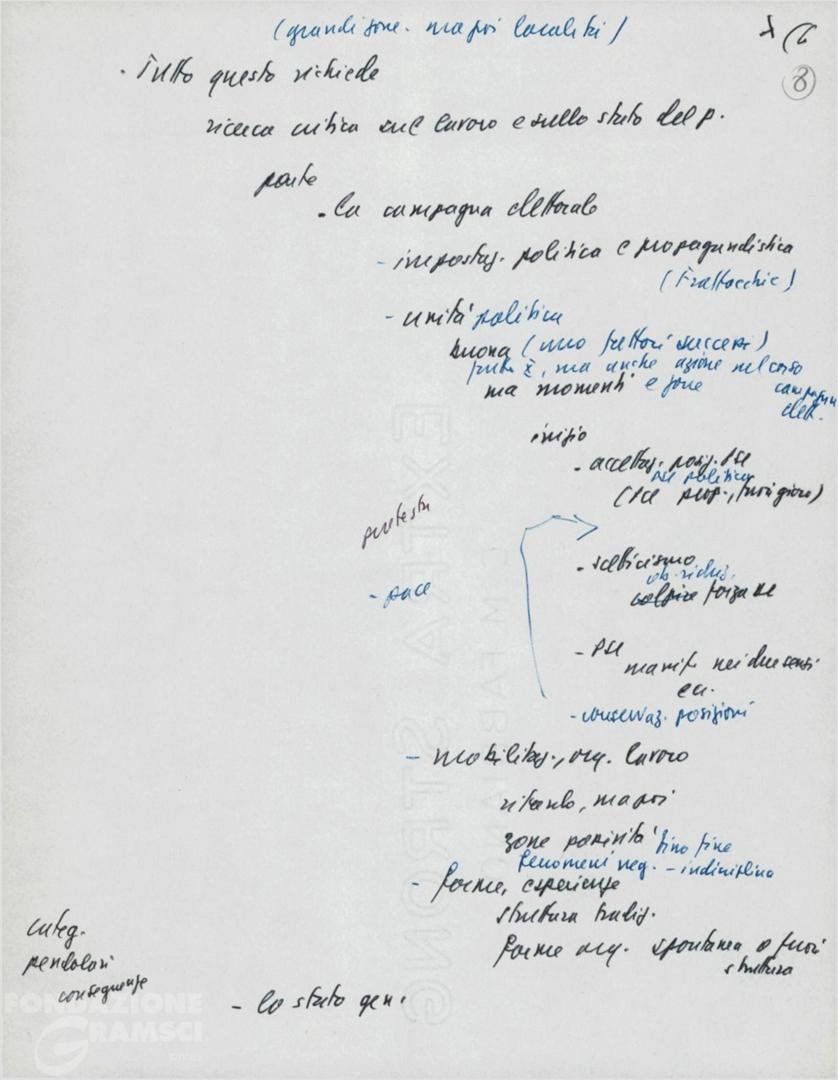 (grandi zone. ma poi località)
8
. Tutto questo richiede
ricerca critica sul lavoro e sullo stato del p.
parte
. la campagna elettorale
- impostaz. politica e propagandistica
(Frattocchie)
- unità politica
buona (uno fattori successi)
, ma anche azione nel corso
campagna
elett.
ma momenti e zone
inizio
. accettaz. posiz. PSI
politica
protesta
- pace
. scetticismo
forza
- PSI
nei due sensi
ecc.
- conservaz. posizioni
- mobilitaz., org. lavoro
ritardo, ma poi
zone passività fino fine
fenomeni neg. - indisciplina
- forme, esperienze
struttura tradiz.
forme org. spontanea o fuori
struttura
categ.
pendolari
conseguenze
- lo stato gen.
EXTRA STRONG
FABRIANO
FONDAZIONE
GRAMSCI